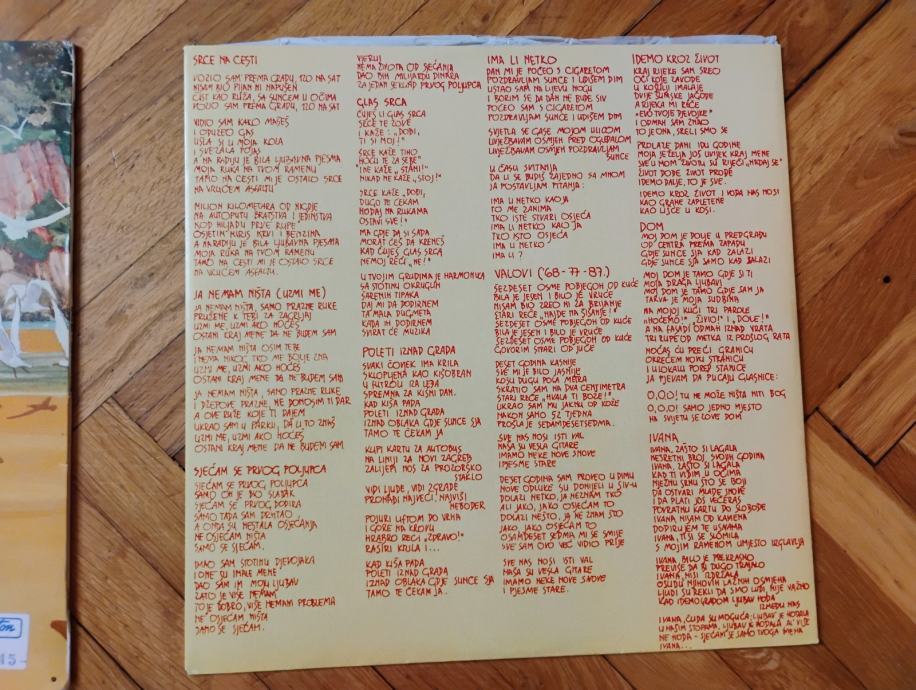 SRCE NA CESTI
VOZIO SAM PREMA GRADU, 120 NA SAT
NISAM BIO PIJAN NI NAPUŠEN
ČIST KAO RUŽA, SA SUNCEM U OČIMA
VOZIO SAM PREMA GRADU, 120 NA SAT
VIDIO SAM KAKO MAŠEŠ
I ODUZEO GAS
UŠLA SI U MOJA KOLA
I SVEZALA POJAS
A NA RADIJU JE BILA LJUBAVNA PJESMA
MOJA RUKA NA TVOM RAMENU
TAMO NA CESTI MI JE OSTALO SRCE
NA VRUĆEM ASFALTU
MILION KILOMETARA OD NIGDJE
NA AUTOPUTU BRATSTVA I JEDINSTVA
KOD HILJADU PRVE RUPE
OSJETIH MIRIS KRVI I BENZINA
A NA RADIJU JE BILA LJUBAVNA PJESMA
MOJA RUKA NA TVOM RAMENU
TAMO NA CESTI MI JE OSTALO SRCE
NA VRUĆEM ASFALTU.
JA NEMAM NIŠTA (UZMI ME)
JA NEMAM NIŠTA, SAMO PRAZNE RUKE
PRUŽENE K TEBI ZA ZAGRLJAJ
UZMI ME, UZMI AKO HOĆEŠ
OSTANI KRAJ MENE DA NE BUDEM SAM
JA NEMAM NIŠTA OSIM TEBE
I NEMA NIKOG TKO ME BOLJE ZNA
UZMI ME, UZMI AKO HOĆEŠ
OSTANI KRAJ MENE DA NE BUDEM SAM
JA NEMAM NIŠTA, SAMO PRAZNE RUKE
I DŽEPOVE PRAZNE, NE DONOSIM TI DAR
A OVE RUŽE KOJE TI DAJEM
UKRAO SAM U PARKU, DA LI TO ZNAŠ
UZMI ME, UZMI AKO HOĆEŠ
OSTANI KRAJ MENE DA NE BUDEM SAM
SJEĆAM SE PRVOG POLJUPCA
SJEĆAM SE PRVOG POLJUPCA
SAMO ON JE BIO SLADAK
SJEĆAM SE PRVOG DODIRA
SAMO TADA SAM DRHTAO
A ONDA SU NESTALA OSJEĆANJA
NE OSJEĆAM NIŠTA
SAMO SE SJEĆAM.
IMAO SAM STOTINU DJEVOJAKA
I ONE SU IMALE MENE
DAO SAM IM MOJU LJUBAV
ZATO JE VIŠE NEMAM
TO JE DOBRO, VIŠE NEMAM PROBLEMA
NE OSJEĆAM NIŠTA
SAMO SE SJEĆAM.
VJERUJ
NEMA ŽIVOTA OD SJEĆANJA
DAO BIH MILIJARDU DINARA
ZA JEDAN SEKUND PRVOG POLJUPCA
GLAS SRCA
ČUJEŠ LI GLAS SRCA
SRCE TE ZOVE
I KAŽE: "DOĐI,
TI SI MOJ!"
SRCE KAŽE TIHO
HOĆU TE ZA SEBE"
I NE KAŽE "STANI!"
NIKAD NE KAŽE "STOJ!"
SRCE KAŽE "DOĐI,
DUGO TE ČEKAM
HODAJ NA RUKAMA
OSTAVI SVE!"
MA GDJE DA SI SADA
MORAT ĆEŠ DA KRENEŠ
KAD ČUJEŠ GLAS SRCA
NEMOJ REĆI "NE!"
U TVOJIM GRUDIMA JE HARMONIKA
SA STOTINU OKRUGLIH
ŠARENIH TIPAKA
DAJ MI DA DODIRNEM
TA MALA DUGMETA
KADA IH DODIRNEM
SVIRAT ĆE MUZIKA
POLETI IZNAD GRADA
SVAKI ČOVJEK IMA KRILA
SKLOPLJENA KAO KIŠOBRAN
U FUTROLI IZA LEĐA
SPREMNA ZA KIŠNI DAN.
KAD KIŠA PADA
POLETI IZNAD GRADA
IZNAD OBLAKA GDJE SUNCE SJA
TAMO TE ČEKAM JA
KUPI KARTU ZA AUTOBUS
NA LINIJI ZA NOVI ZAGREB
ZALIJEPI NOS ZA PROZORSKO
STAKLO
VIDI LJUDE, VIDI ZGRADE
PRONAĐI NAJVEĆI, NAJVIŠI
NEBODER
POJURI LIFTOM DO VRHA
I GORE NA KROVU
HRABRO RECI "ZDRAVO!"
RAŠIRI KRILA I...
KAD KIŠA PADA
POLETI IZNAD GRADA
IZNAD OBLAKA GDJE SUNCE SJA
TAMO TE ČEKAM JA.
IMA LI NETKO
DAN MI JE POČEO S CIGARETOM
POZDRAVLJAM SUNCE I UDIŠEM DIM
USTAO SAM NA LIJEVU NOGU
I BORIM SE DA DAN NE BUDE SIV
POČEO SAM S CIGARETOM
POZDRAVLJAM SUNCE I UDIŠEM DIM
SVJETLA SE GASE MOJOM ULICOM
UVJEŽBAVAM OSMIJEH PRED OGLEDALOM
UVJEŽBAVAM OSMIJEH POZDRAVLJAM
SUNCE
U ČASU SVITANJA
DA LI SE BUDIŠ ZAJEDNO SA MNOM
JA POSTAVLJAM PITANJA:
IMA LI NETKO KAO JA
TO ME ZANIMA
TKO ISTE STVARI OSJEĆA
IMA LI NETKO KAO JA
TKO ISTO OSJEĆA
IMA LI NETKO
IMA LI?
VALOVI ('68 - 77 - 87.)
ŠEZDESET OSME POBJEGOH OD KUĆE
BILA JE JESEN I BILO JE VRUĆE
NISAM BIO ZREO NI ZA BRIJANJE
STARI REČE "HAJDE NA ŠIŠANJE!"
ŠEZDESET OSME POBJEGOH OD KUĆE
BILA JE JESEN I BILO JE VRUĆE
ŠEZDESET OSME POBJEGOH OD KUĆE
GOVORIM STVARI OD JUČE
DESET GODINA KASNIJE
SVE MI JE BILO JASNIJE
KOSU DUGU POLA METRA
SKRATIO SAM NA DVA CENTIMETRA
STARI REČE "HVALA TI BOŽE!"
UKRAO SAM MU JAKNU OD KOŽE
NAKON SAMO 52 TJEDNA
PROŠLA JE SEDAMDESETSEDMA.
SVE NAS NOSI ISTI VAL
NAŠA SU VESLA GITARE
IMAMO NEKE NOVE SNOVE
I PJESME STARE
DESET GODINA SAM PROVEO U DIMU
NOVE ODLUKE SU DONIJELI U ŠIV-U
DOLAZI NETKO, JA NE ZNAM TKO
ALI JAKO, JAKO OSJEĆAM TO
DOLAZI NEŠTO, JA NE ZNAM ŠTO
JAKO, JAKO OSJEĆAM TO
OSAMDESET SEDMA MI SE SMIJE
SVE SAM OVO VEĆ VIDIO PRIJE
SVE NAS NOSI ISTI VAL
NAŠA SU VESLA GITARE
IMAMO NEKE NOVE SNOVE
I PJESME STARE.
IDEMO KROZ ŽIVOT
KRAJ RIJEKE SAM SREO
OČI KOJE ZAVODE
U KOŠULJI IMALA JE
DVIJE ŠUMSKE JAGODE
A RIJEKA MI REČE
"EVO TVOJE DJEVOJKE"
I ODMAH SAM ZNAO
TO JE ONA, SRELI SMO SE
PROLAZE DANI IDU GODINE
MOJA JE ŽELJA JOŠ UVIJEK KRAJ MENE
SVE U MOM ŽIVOTU SU RIJEČI "NADAJ SE"
ŽIVOT DOĐE ŽIVOT PROĐE
IDEMO DALJE, TO JE SVE.
IDEMO KROZ ŽIVOT I VODA NAS NOSI
KAO GRANE ZAPLETENE
KAO LIŠĆE U KOSI.
DOM
MOJ DOM JE DOLJE U PREDGRAĐU
OD CENTRA PREMA ZAPADU
GDJE SUNCE SJA KAD ZALAZI
GDJE SUNCE SJA SAMO KAD ZALAZI
MOJ DOM JE TAMO GDJE SI TI
MOJA DRAGA LJUBAVI
MOJ DOM JE TAMO GDJE SAM JA
TAKVA JE MOJA SUDBINA
NA MOJOJ KUĆI TRI PAROLE
"HOĆEMO!" "ŽIVIO!" I "DOLE!"
A NA FASADI ODMAH IZNAD VRATA
TRI RUPE OD METKA IZ PROŠLOG RATA
NOĆAS ĆU PREĆI GRANICU
OKREĆEM NOVU STRANICU
I U LOKALU PORED STANICE
JA PJEVAM DA PUCAJU GLASNICE:
O,O,O! TU NE MOŽE NIŠTA NITI BOG
O,O,O! SAMO JEDNO MJESTO
NA SVIJETU SE ZOVE DOM
IVANA
IVANA, ZAŠTO SI LAGALA
NESRETNI BROJ SVOJIH GODINA
IVANA, ZAŠTO SI LAGALA
KAD TI VIDIM U OČIMA
NJEŽNU SRNU ŠTO SE BOJI
DA OSTVARI MLADE SNOVE
I DA PLATI JOŠ VEČERAS
POVRATNU KARTU DO SLOBODE
IVANA NISAM OD KAMENA
DODIRUJEM TE USNAMA
IVANA, TI SI SE SLOMILA
S MOJIM RAMENOM UMJESTO UZGLAVLJA
IVANA, BILO JE PREKRASNO
PREVIŠE DA BI DUGO TRAJALO
IVANA, NISI IZDRŽALA
OSUDU NJIHOVIH LAŽNIH OSMJEHA
LJUDI SU REKLI DA SMO LUDI, NIJE VAŽNO
KAD IDEMO GRADOM LJUBAV HODA
IZMEĐU NAS
IVANA, ČUDA SU MOGUĆA; LJUBAV JE HODALA
U NAŠIM STOPAMA, LJUBAV JE HODALA AL' VIŠE
NE HODA - SJEĆAM SE SAMO TVOGA IMENA
IVANA...